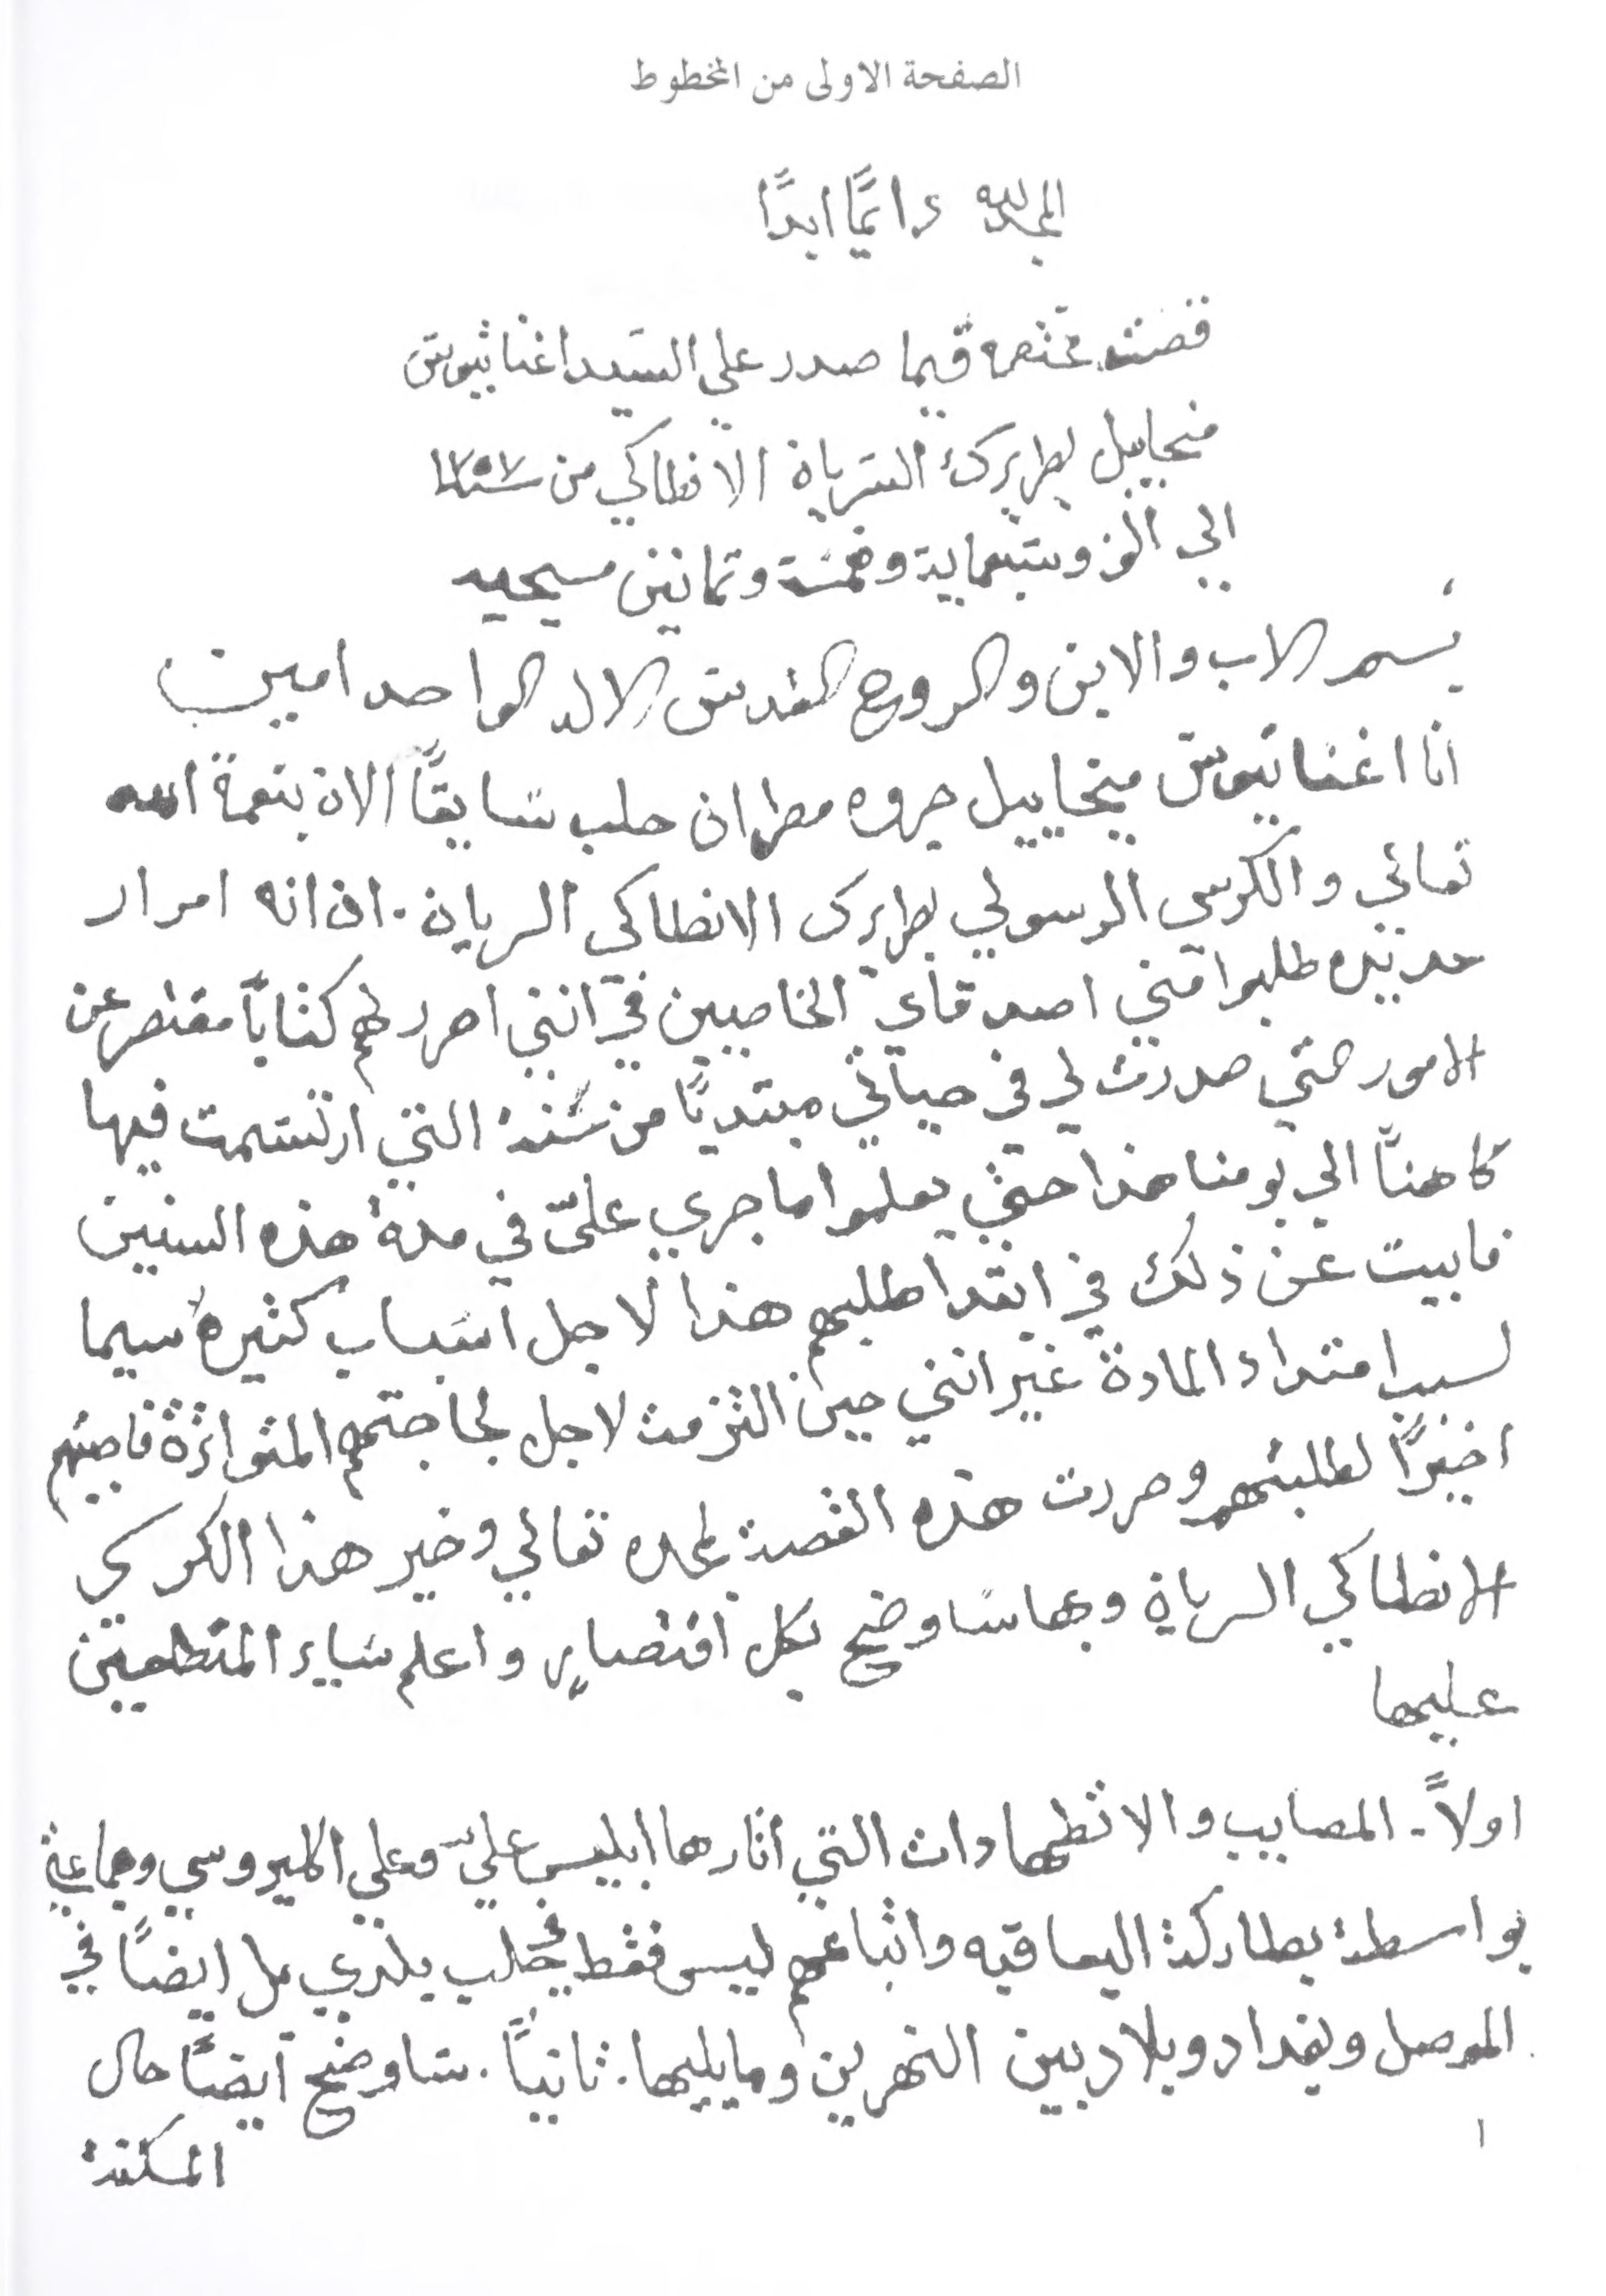 الصفحة الاولى من المخطوط
المجدلله دايمًا ابدًا
قصة مختصره فيما صدر على السيد اغناتيوس
ميخاييل بطريرك السريان الانطاكي من سنة ١٧٥٧
الي الف وسبعماية وخمسة وثمانين مسيحيه
بسم الاب والابن والروح القدس الاله الواحد امين
انا اغناتيوس ميخاييل جروه مطران حلب سابقًا الان بنعمة الله
تعالي والكرسي الرسولي بطريرك الانطاكي السريان. ان انه امرار
عديده طلبوا مني اصدقاي الخاصيين في انني احرر لهم كتابًا مختصر عن
الامور التي صدرت لي في حياتي مبتديًا من سنة التي ارتسمت فيها
كاهنًا الي يومنا هذا حتي يعلموا ما جري عليّ في مدة هذه السنين
فابيت عن ذلك في ابتدا طلبهم هذا لاجل اسباب كثيره سيما
لسبب امتداد المادة غير انني حين التزمت لاجل لجاجتهم المتواترة فاجبتهم
اخيرًا لطلبتهم وحررت هذه القصة لمجده تعالي وخير هذا الكرسي
الانطاكي السرياني وبها ساوضح بكل اختصار واعلم ساير المتطلعين
عليها
اولاً. المصايب والاضطهادات التي اثارها ابليس عليّ وعلي اكليروسي وجماعتي
بواسطة بطاركة اليعاقبه واتباعهم ليس فقط في حلب بلدي بل ايضًا في
الموصل وبغداد وبلاد بين النهرين وما يليها. ثانيًا. ساوضح ايضًا حال
١
المسكنة